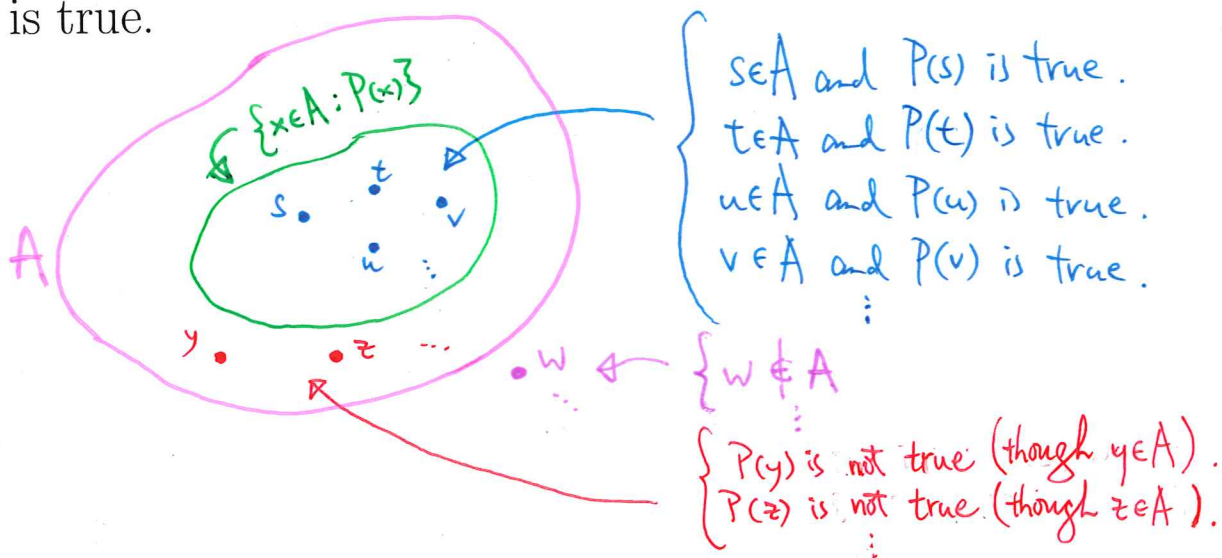 is true.
{x∈A : P(x)}
A
s
t
u
v
⋮
y
z
...
w
...
s∈A and P(s) is true.
t∈A and P(t) is true.
u∈A and P(u) is true.
v∈A and P(v) is true.
⋮
{w∉A
⋮
P(y) is not true (though y∈A).
P(z) is not true (though z∈A).
⋮